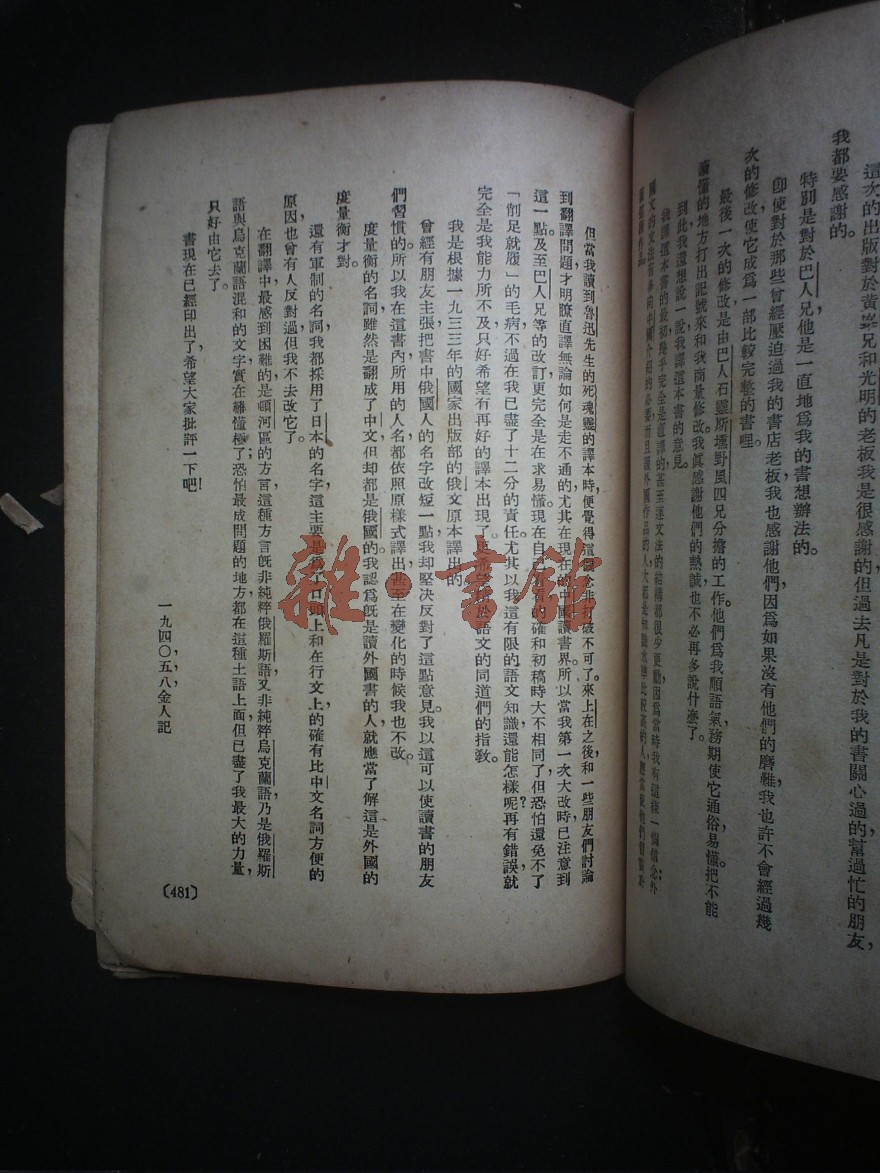 這次的出版對於黃峯兄和光明的老板我是很感謝的但過去凡是對於我的書關心過的幫過忙的朋友，
我都要感謝的。
特別是對於巴人兄他是一直地爲我的書想辦法的。
卽使對於那些曾經壓迫過我的書店老板我也感謝他們因爲如果沒有他們的磨難我也許不會經過幾
次的修改使它成爲一部比較完整的書哩。
最後一次的修改是由巴人石靈斯壎野風四兄分擔的工作他們爲我順語氣務期使它通俗易懂把不能
讀懂的地方打出記號來和我商量修改。我眞感謝他們的熱誠也不必再多說什麼了。
到此我還想說一說我譯這本書的意見。
我譯這本書的最初幾乎完全是直譯的甚至連文法的結構都很少更動因爲當時我有這樣一個信念：外
國文的文法有多向中國介紹的必要而且讀外國作品的人大都是
但當我讀到魯迅先生的死魂靈的譯本時便覺得這信念非打破不可了。來上在之後和一些朋友們討論
到翻譯問題才明瞭直譯無論如何是走不通的尤其在現在的中國讀書界。所以當我第一次大改時已注意到
這一點及至巴人兄等的改訂更完全是在求易懂。現在自己看看的確和初稿時大不相同了但恐怕還免不了
「削足就履」的毛病不過在我已盡了十二分的責任。尤其以我這有限的語文知識還能怎樣呢？再有錯誤就
完全是我能力所不及只好希望有再好的譯本出現了。更希望於語文的同道們的指敎。
我是根據一九三三年的國家出版部的俄文原本譯出的。
曾經有朋友主張把書中俄國人的名字改短一點我却堅決反對了這點意見。我以這可以使讀書的朋友
們習慣的所以我在這書內所用的人名都依照原樣式譯出甚至在變化的時候我也不改。
度量衡的名詞雖然是翻成了中文但却都是俄國的。我認爲旣是讀外國書的人就應當了解這是外國的
度量衡才對。
還有軍制的名詞我都採用了日本的名字，這主要是爲了口頭上和在行文上的確有比中文名詞方便的
原因也曾有人反對過但我不去改它了。
在翻譯中最感到困難的是頓河區的方言，這種方言旣非純粹俄羅斯語又非純粹烏克蘭語，乃是俄羅斯
語與烏克蘭語混和的文字實在難懂極了；恐怕最成問題的地方都在這種土語上面但已盡了我最大的力量，
只好由它去了。
書現在已經印出了希望大家批評一下吧！
一九四〇，五，八，金人記
〔481〕
雜·書館